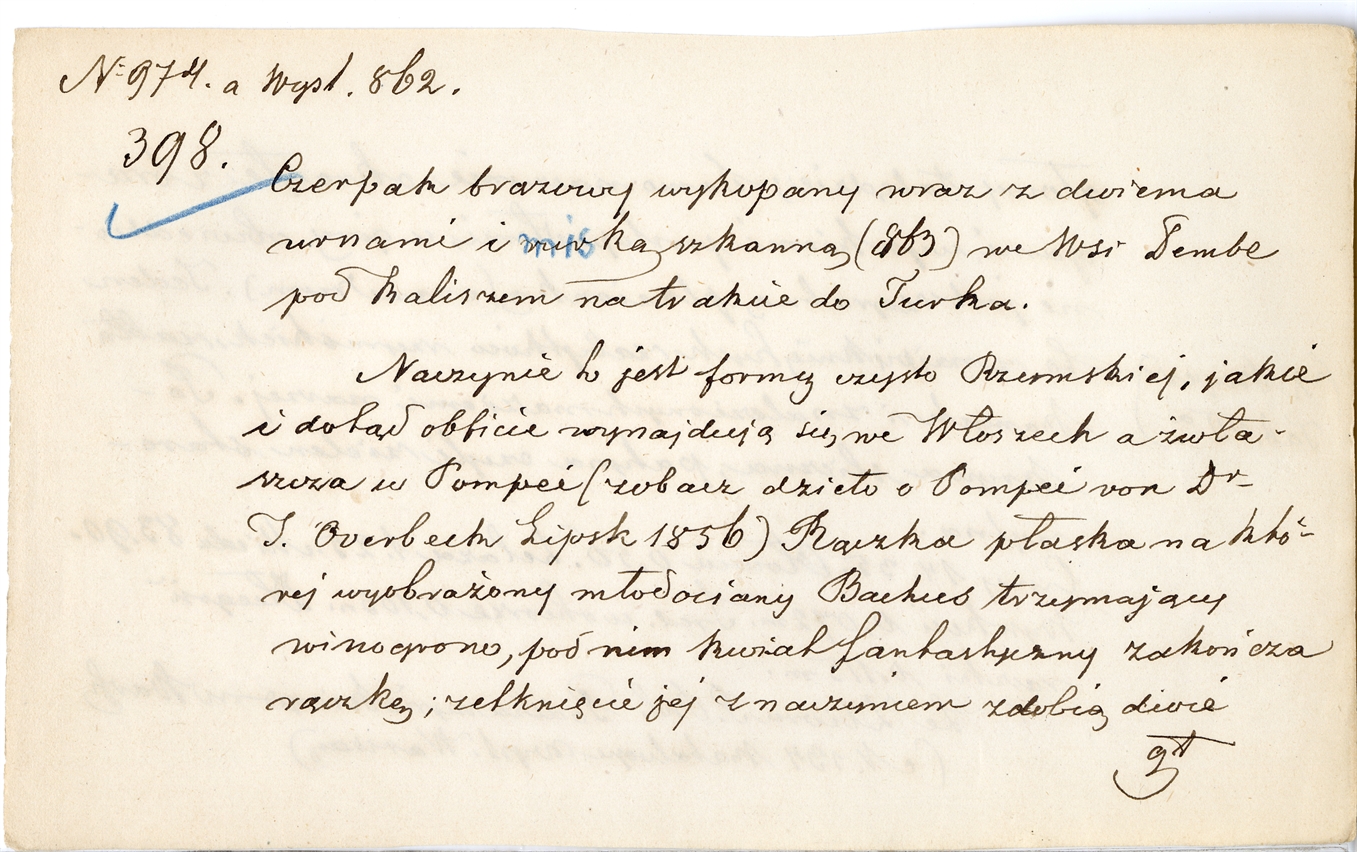 № 974. a Wyst. 862.
398.
Czerpak brazowy wykopany wraz z dwiema
urnami i miską szkanną (863) we Wsi Dembe
pod Kaliszem na trakcie do Turka.
Naczynie to jest formy czysto Rzymskiej, jakie
i dotąd obficie wynajdują się we Włoszech a zwła-
szcza w Pompei (zobacz dzieło o Pompei von Dr
J. Overbeck Lipsk 1856) Rączka płaska na któ-
rej wyobrażony młodociany Bachus trzymający
winogrono, pod nim kwiat fantastyczny zakończa
rączkę; zetknięcie jej z naczyniem zdobią dwie
gł